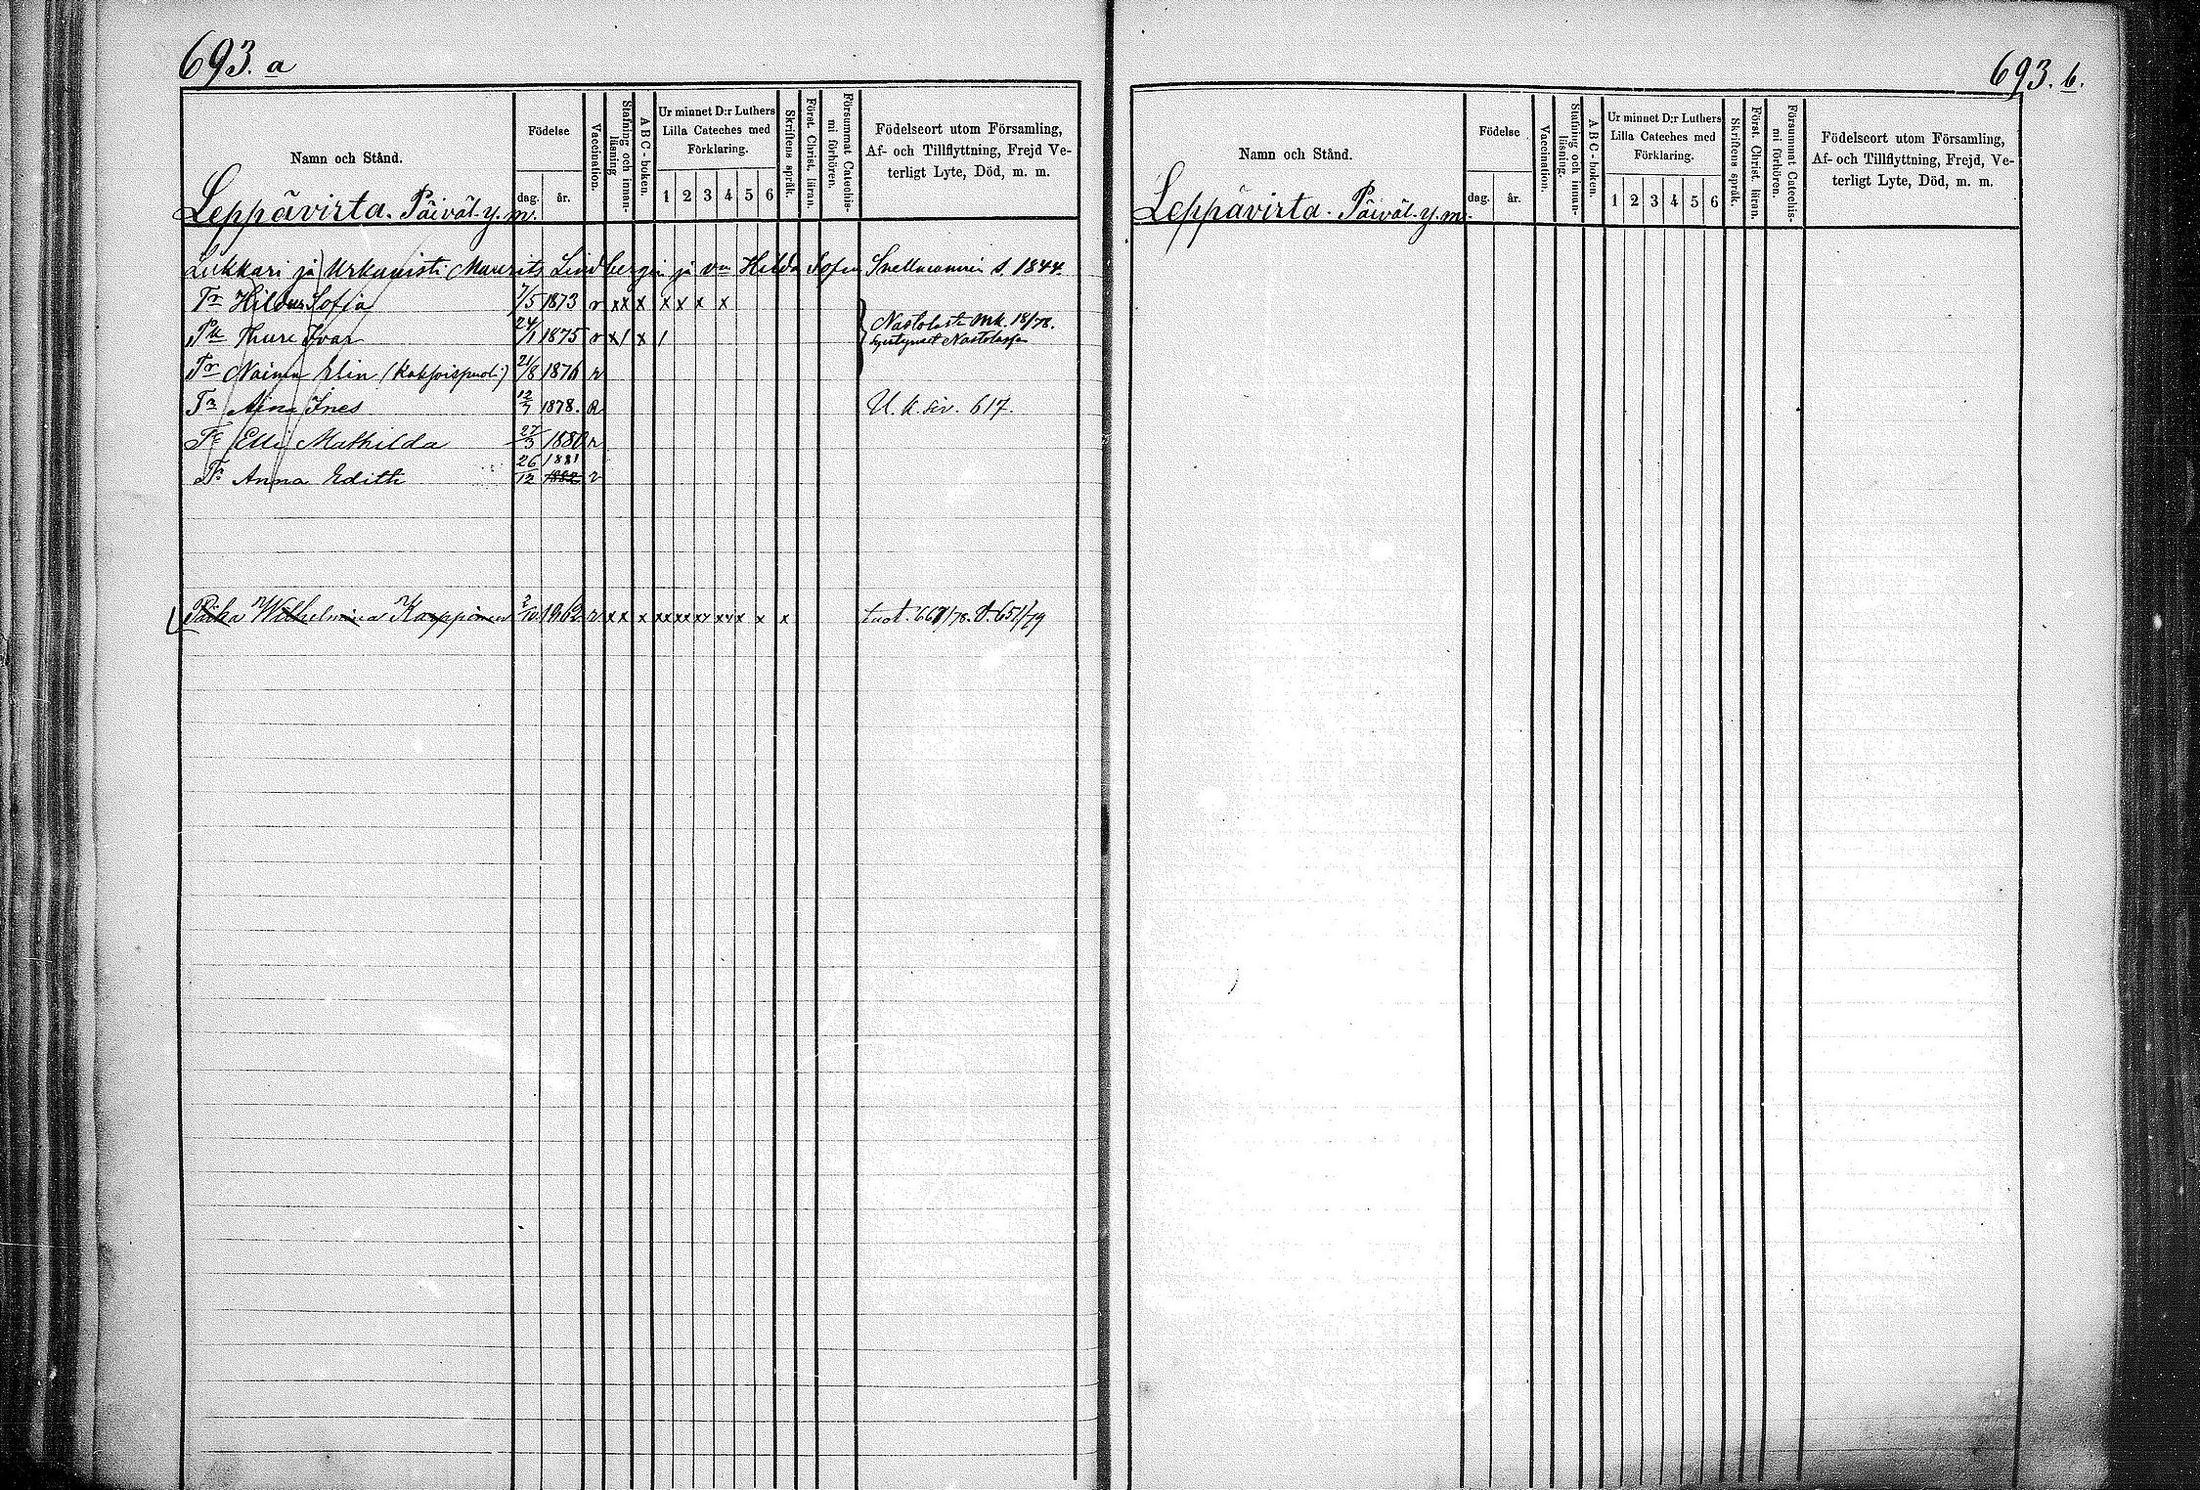 693. a
Namn och Stånd.
Födelse
dag.
år.
Vaccination.
Stafning och innan-
läsning
ABC-boken.
Ur minnet D:r Luthers
Lilla Cateches med
Förklaring.
1 2 3 4 5 6
Skriftens språk.
Först. Christ. läran.
Försummat Catechis-
mi förhören.
Födelseort utom Församling,
Af- och Tillflyttning, Frejd Ve-
terligt Lyte, Död, m. m.
Leppävirta. Päiväl. y. m.
Lukkari ja Urkanisti Maurits Lindbergin ja vm Hilda Sofia Snellmannin s. 1844.
Tr Hildur Sofia 7/5 1873 r xx x x x x x
Pk Thure Ivar 24/1 1875 r x/ x / Nastolasta mk. 18/78.
syntyneet Nastolassa
Tr Naima Elin 21/8 1876 r
Tr Aina Ines 12/7 1878. R U. k. siv. 617.
Tr Elli Mathilda 27/3 1880 r
1881
Tr Anna Edith 26/12 1882 r
Piika Wilhelmina 2/10 1862 r xx x xx xx xx x x x x tuot. /78. 651/79
693. b.
Namn och Stånd.
Födelse
dag.
år.
Vaccination.
Stafning och innan-
läsning.
ABC-boken.
Ur minnet D:r Luthers
Lilla Cateches med
Förklaring.
1 2 3 4 5 6
Skriftens språk.
Först. Christ. läran.
Försummat Catechis-
mi förhören.
Födelseort utom Församling,
Af- och Tillflyttning, Frejd, Ve-
terligt Lyte, Död, m. m.
Leppävirta. Päiväl. y. m.